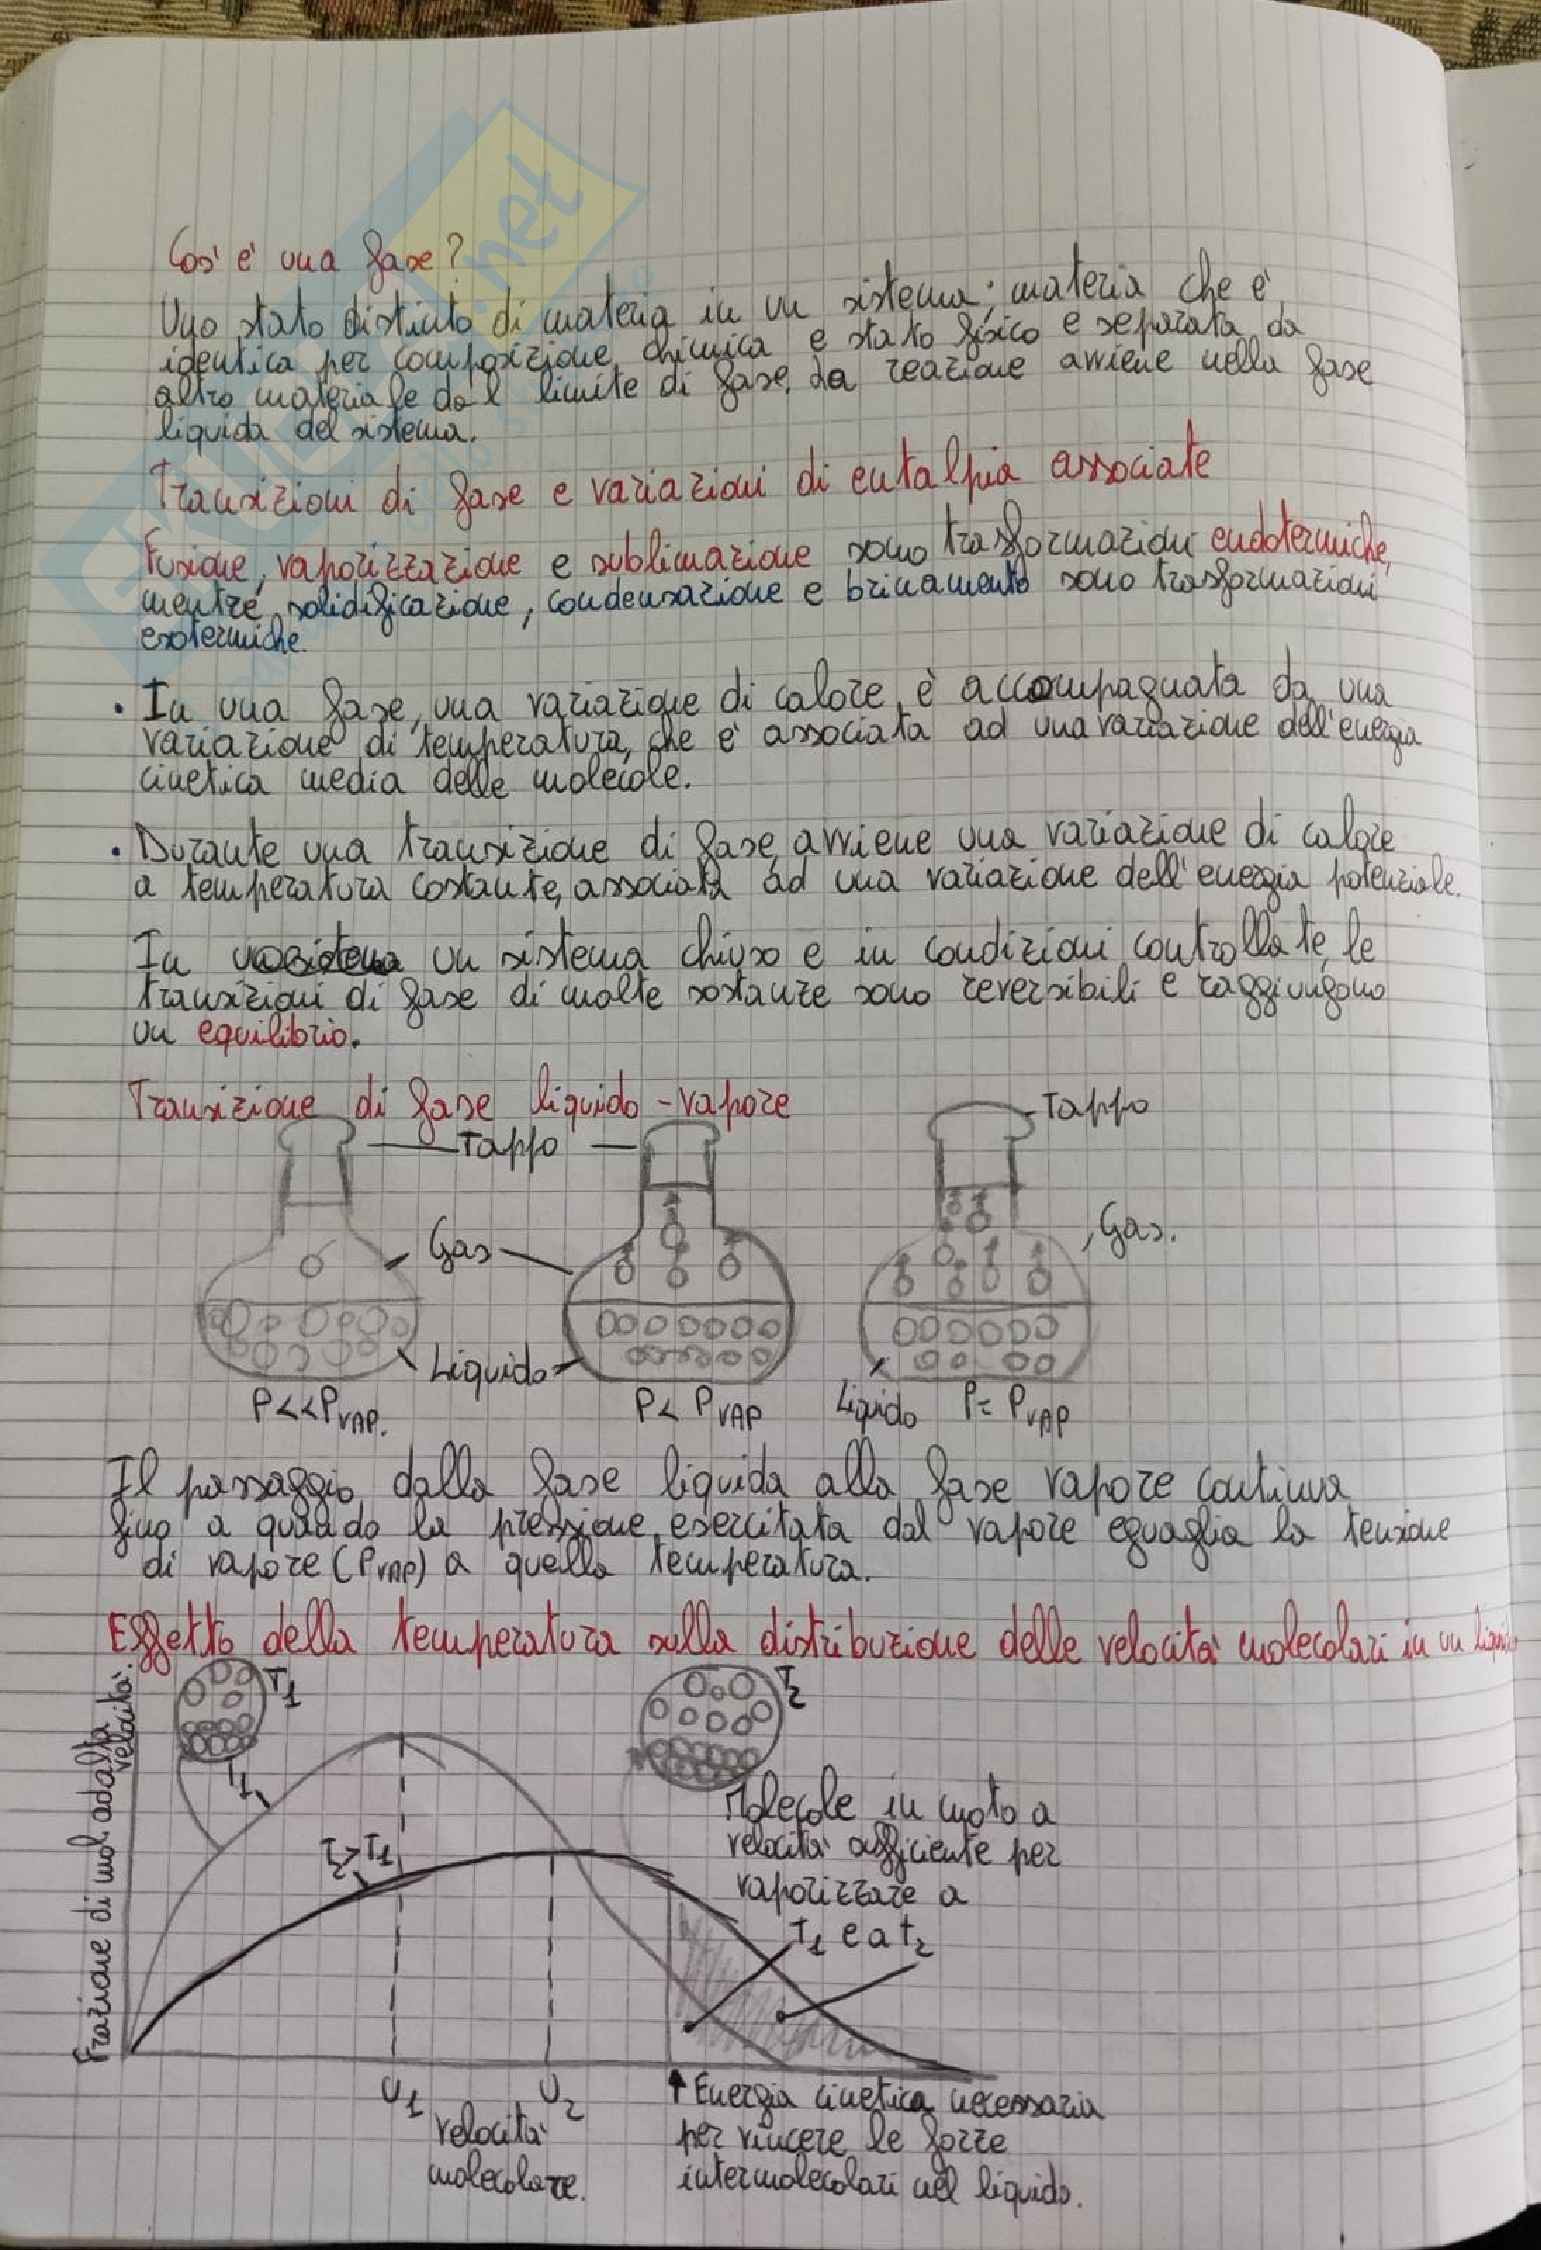 Cos' è una fase?
Uno stato distinto di materia in un sistema; materia che è
identica per composizione chimica e stato fisico e separata da
altro materiale dal limite di fase. La reazione avviene nella fase
liquida del sistema.
Transizioni di fase e variazioni di entalpia associate
Fusione, vaporizzazione e sublimazione sono trasformazioni endotermiche,
mentre solidificazione, condensazione e brinamento sono trasformazioni
esotermiche.
• In una fase, una variazione di calore è accompagnata da una
variazione di temperatura, che è associata ad una variazione dell'energia
cinetica media delle molecole.
• Durante una transizione di fase avviene una variazione di calore
a temperatura costante, associata ad una variazione dell'energia potenziale.
In un sistema chiuso e in condizioni controllate, le
transizioni di fase di molte sostanze sono reversibili e raggiungono
un equilibrio.
Transizione di fase liquido-vapore
Tappo
Tappo
Gas
Gas.
Liquido
Liquido
P<<PVAP.
P< PVAP
P= PVAP
Il passaggio dalla fase liquida alla fase vapore continua
fino a quando la pressione esercitata dal vapore eguaglia la tensione
di vapore (PVAP) a quella temperatura.
Effetto della temperatura sulla distribuzione delle velocità molecolari in un liquido
T1
T2
T1
T2>T1
Frazione di mol ad alta velocità.
Molecole in moto a
velocità sufficiente per
vaporizzare a
T1 e a t2
U1
U2
velocità
molecolare.
↑ Energia cinetica necessaria
per vincere le forze
intermolecolari nel liquido.
SKUOLA.net